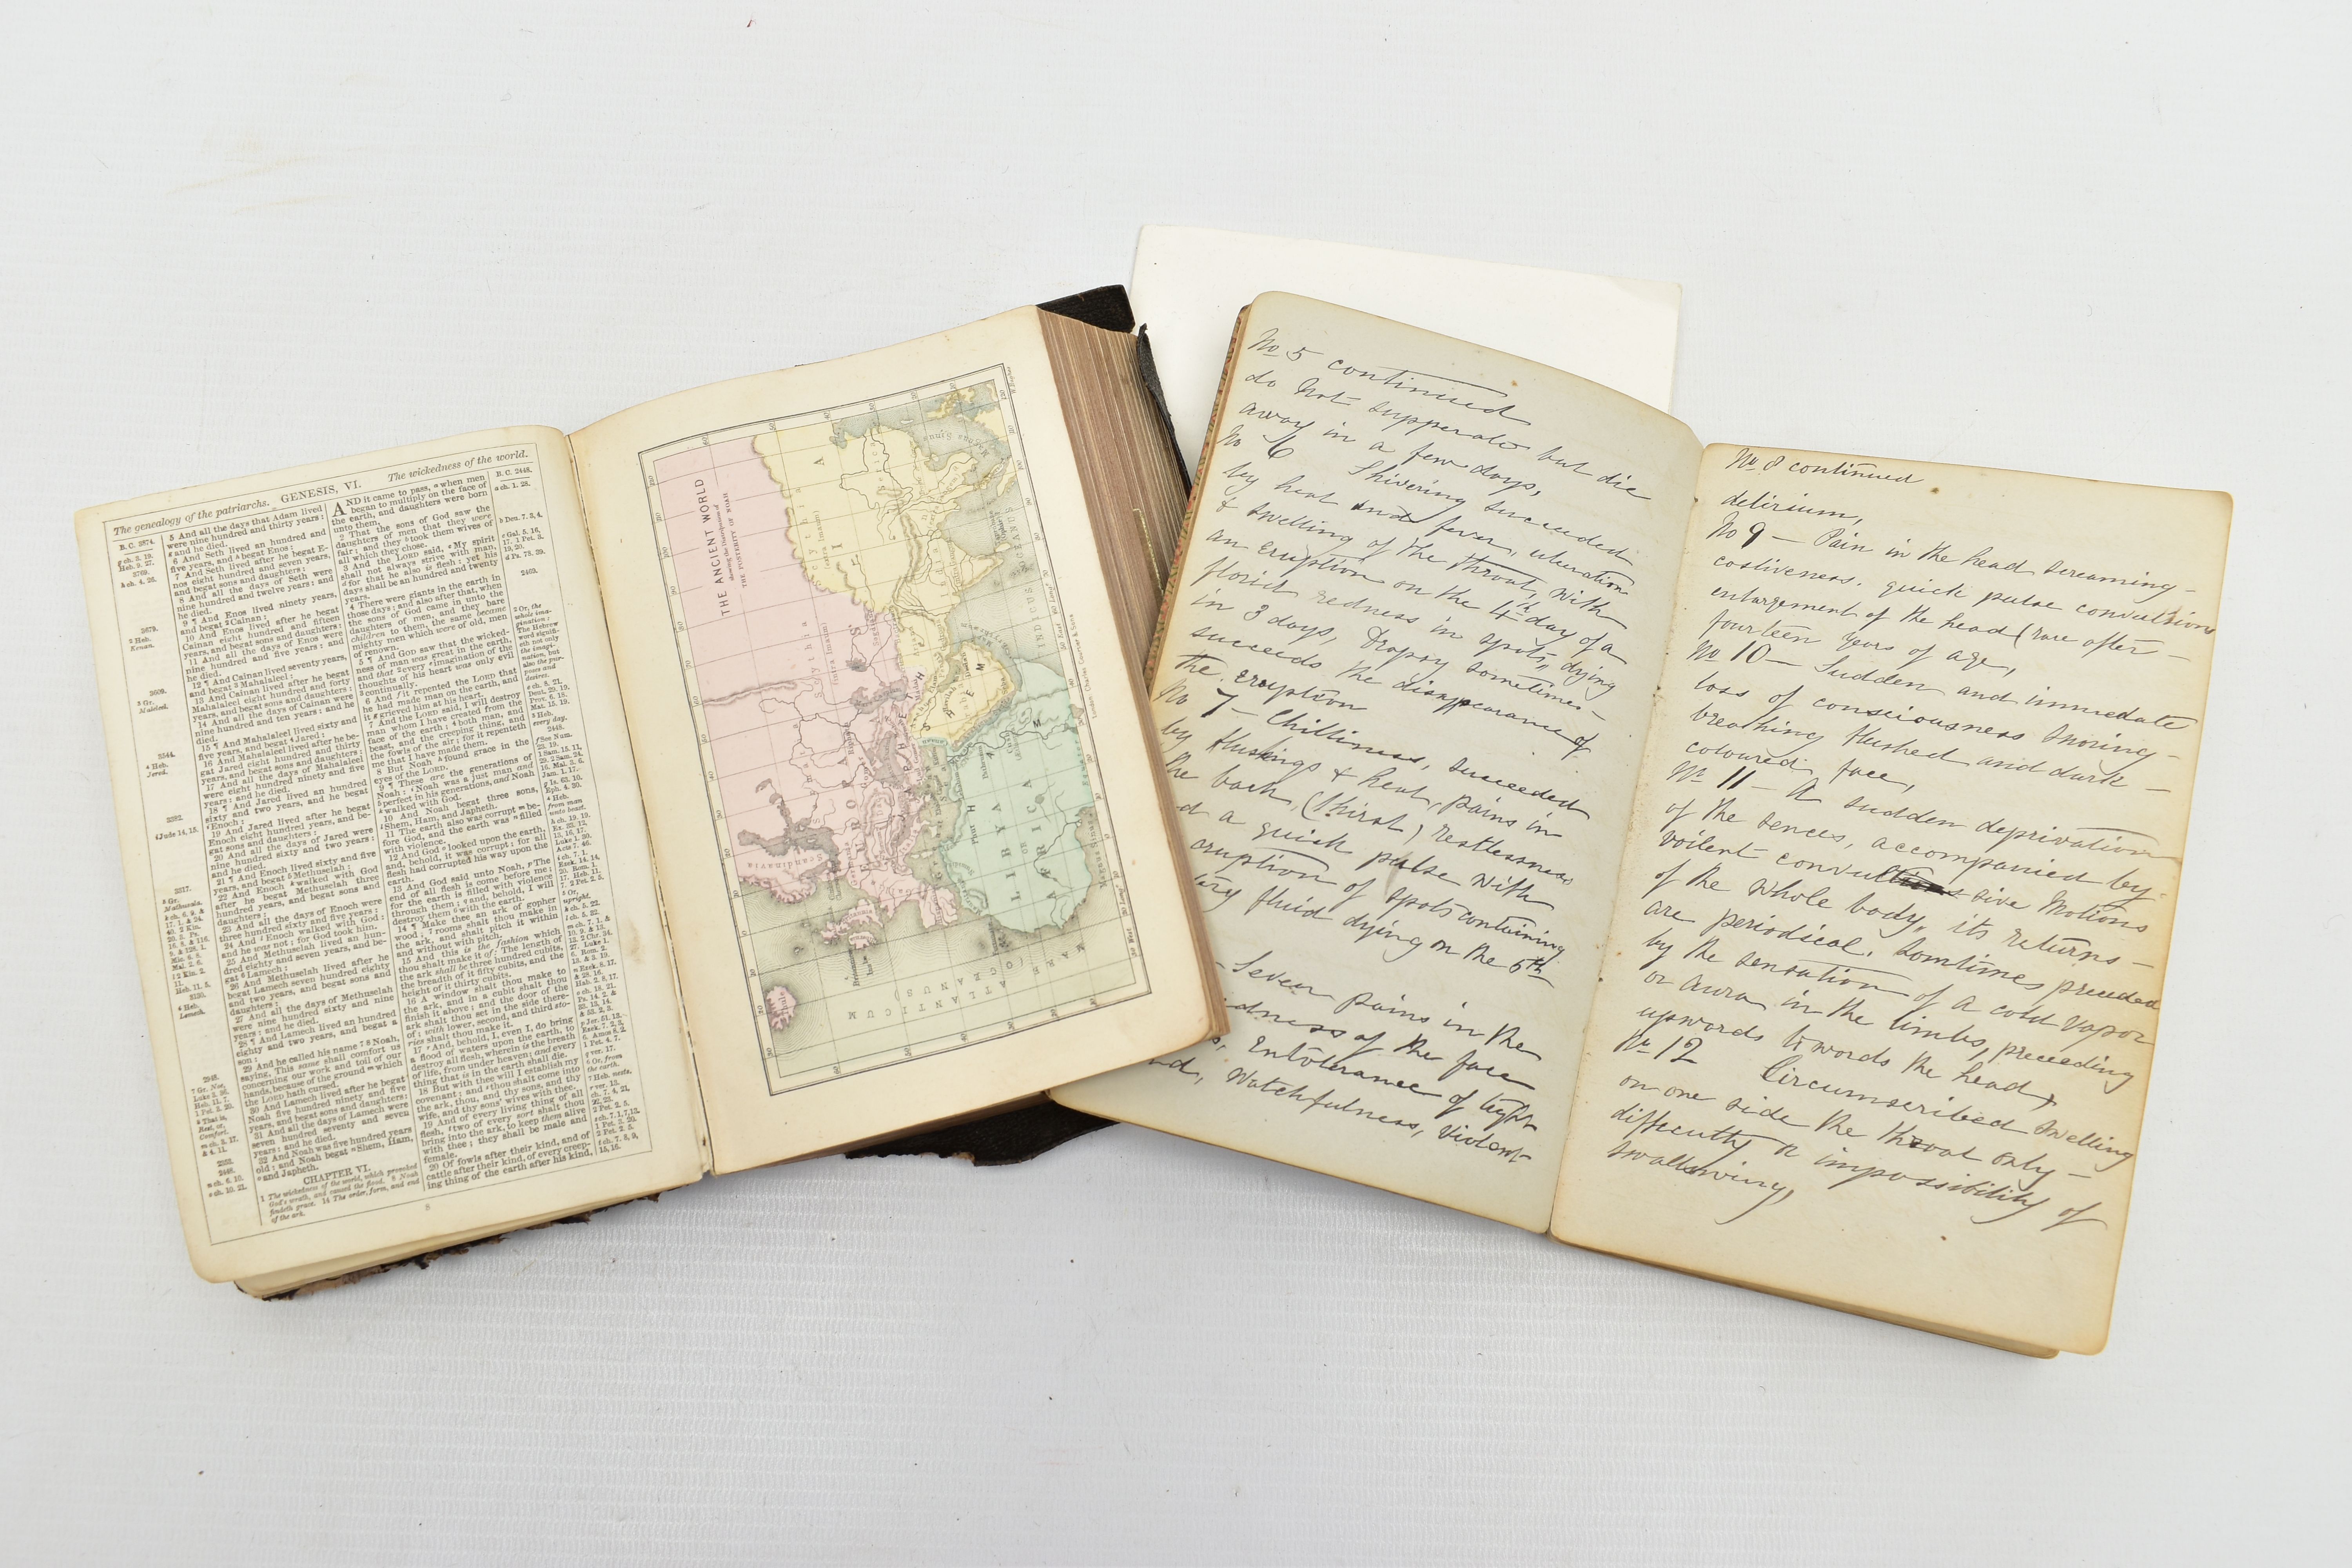 The genealogy of the patriarchs. GENESIS, VI. The wickedness of the world.
B.C. 3874.
5 And all the days that Adam lived
were nine hundred and thirty years:
and he died.
6 And Seth lived an hundred and
five years, and begat Enos:
7 And Seth lived after he begat E-
nos eight hundred and seven years,
and begat sons and daughters:
8 And all the days of Seth were
nine hundred and twelve years: and
he died.
9 ¶ And Enos lived ninety years,
and begat Cainan:
10 And Enos lived after he begat
Cainan eight hundred and fifteen
years, and begat sons and daughters:
11 And all the days of Enos were
nine hundred and five years: and
he died.
12 ¶ And Cainan lived seventy years,
and begat Mahalaleel:
13 And Cainan lived after he begat
Mahalaleel eight hundred and forty
years, and begat sons and daughters:
14 And all the days of Cainan were
nine hundred and ten years: and he
died.
15 ¶ And Mahalaleel lived sixty and
five years, and begat Jared:
16 And Mahalaleel lived after he be-
gat Jared eight hundred and thirty
years, and begat sons and daughters:
17 And all the days of Mahalaleel
were eight hundred ninety and five
years: and he died.
18 ¶ And Jared lived an hundred
sixty and two years, and he begat
Enoch:
19 And Jared lived after he begat
Enoch eight hundred years, and be-
gat sons and daughters:
20 And all the days of Jared were
nine hundred sixty and two years:
and he died.
21 ¶ And Enoch lived sixty and five
years, and begat Methuselah:
22 And Enoch walked with God
after he begat Methuselah three
hundred years, and begat sons and
daughters:
23 And all the days of Enoch were
three hundred sixty and five years:
24 And Enoch walked with God:
and he was not; for God took him.
25 And Methuselah lived an hun-
dred eighty and seven years, and be-
gat Lamech:
26 And Methuselah lived after he
begat Lamech seven hundred eighty
and two years, and begat sons and
daughters:
27 And all the days of Methuselah
were nine hundred sixty and nine
years: and he died.
28 ¶ And Lamech lived an hundred
eighty and two years, and begat a
son:
29 And he called his name Noah,
saying, This same shall comfort us
concerning our work and toil of our
hands, because of the ground which
the LORD hath cursed.
30 And Lamech lived after he begat
Noah five hundred ninety and five
years, and begat sons and daughters:
31 And all the days of Lamech were
seven hundred seventy and seven
years: and he died.
32 And Noah was five hundred years
old: and Noah begat Shem, Ham,
and Japheth.
CHAPTER VI.
1 The wickedness of the world, which provoked
God's wrath, and caused the flood. 8 Noah
findeth grace. 14 The order, form, and end
of the ark.
AND it came to pass, when men
began to multiply on the face of
the earth, and daughters were born
unto them,
2 That the sons of God saw the
daughters of men that they were
fair; and they took them wives of
all which they chose.
3 And the LORD said, My spirit
shall not always strive with man,
for that he also is flesh: yet his
days shall be an hundred and twenty
years.
4 There were giants in the earth in
those days; and also after that, when
the sons of God came in unto the
daughters of men, and they bare
children to them, the same became
mighty men which were of old, men
of renown.
5 ¶ And GOD saw that the wicked-
ness of man was great in the earth,
and that every imagination of the
thoughts of his heart was only evil
continually.
6 And it repented the LORD that
he had made man on the earth, and
it grieved him at his heart.
7 And the LORD said, I will destroy
man whom I have created from the
face of the earth; both man, and
beast, and the creeping thing, and
the fowls of the air; for it repenteth
me that I have made them.
8 But Noah found grace in the
eyes of the LORD.
9 ¶ These are the generations of
Noah: Noah was a just man and
perfect in his generations, and Noah
walked with God.
10 And Noah begat three sons,
Shem, Ham, and Japheth.
11 The earth also was corrupt be-
fore God, and the earth was filled
with violence.
12 And God looked upon the earth,
and, behold, it was corrupt; for all
flesh had corrupted his way upon the
earth.
13 And God said unto Noah, The
end of all flesh is come before me;
for the earth is filled with violence
through them; and, behold, I will
destroy them with the earth.
14 ¶ Make thee an ark of gopher
wood; rooms shalt thou make in
the ark, and shalt pitch it within
and without with pitch.
15 And this is the fashion which
thou shalt make it of: The length of
the ark shall be three hundred cubits,
the breadth of it fifty cubits, and the
height of it thirty cubits.
16 A window shalt thou make to
the ark, and in a cubit shalt thou
finish it above; and the door of the
ark shalt thou set in the side there-
of; with lower, second, and third sto-
ries shalt thou make it.
17 And, behold, I, even I, do bring
a flood of waters upon the earth, to
destroy all flesh, wherein is the breath
of life, from under heaven; and every
thing that is in the earth shall die.
18 But with thee will I establish my
covenant; and thou shalt come into
the ark, thou, and thy sons, and thy
wife, and thy sons' wives with thee.
19 And of every living thing of all
flesh, two of every sort shalt thou
bring into the ark, to keep them alive
with thee; they shall be male and
female.
20 Of fowls after their kind, and of
cattle after their kind, of every creep-
ing thing of the earth after his kind,
B.C. 2448.
8
THE ANCIENT WORLD
shewing the dispersion of
THE POSTERITY OF NOAH
EUROPA
ASIA
LIBYA
OR
AFRICA
HAM
SHEM
JAPHETH
Scythia
(intra Imaum)
Scythia
(extra Imaum)
Scandinavia
Thule
MARE
ATLANTICUM
(OCEANUS)
OCEANUS
INDICUS
Magnus Sinus
No 5 continued
do not supperate but die
away in a few days,
No 6 Shivering succeeded
by heat and fever, ulceration
& swelling of the throat, with
an eruption on the 4th day of a
florid redness in spots, dying
in 3 days, Dropsy sometimes –
succeeds the disappearance of
the eruption
No 7 – Chilliness, succeeded
by flusings & heat, pains in
the back, (thirst) restlessness
d a quick pulse with
eruption of spots containing
fluid dying on the 6th
– Sever pains in the
dness of the face
Entolerance of light
nd, Watchfulness, Violent
No 8 continued
delirium,
No 9 – Pain in the head screaming –
costiveness. quick pulse convultions
enlargement of the head (rare after –
fourteen years of age,
No 10 – Sudden and immedate
loss of consciousness Snoring –
breathing flushed and dark –
coloured face,
No 11 – A sudden deprivation
of the sences, accompanied by –
voilent convulsive Motions
of the whole body, its returns –
are periodical. Somtimes preceded
by the sensation of a cold vapor
or aura in the limbs, preceding
upwords towords the head,
No 12 Circumscribed swelling
on one side the throat only –
difficulty or impossibility of
swallowing,